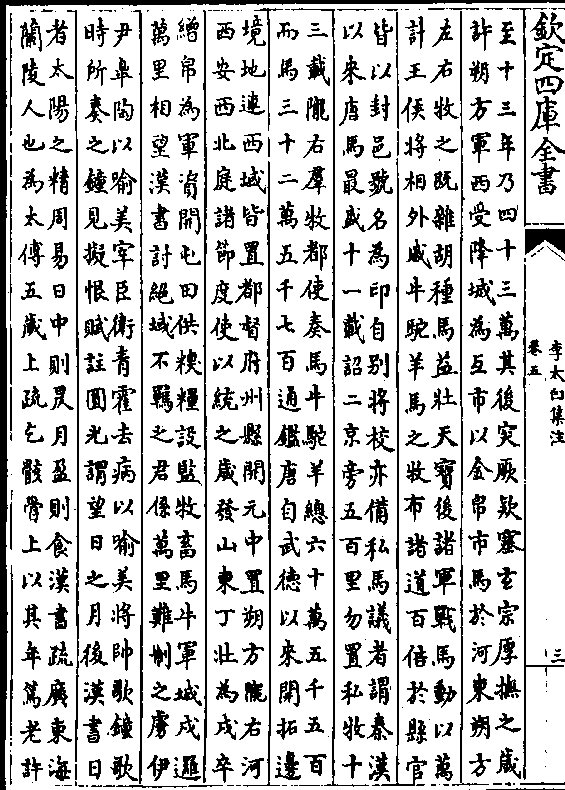 欽定四庫全書
李太白集注
卷五
三
至十三年乃四十三萬其後突厥欵塞玄宗厚撫之歲
許朔方軍西受降城為互市以金帛市馬於河東朔方
左右牧之既雜胡種馬益壯天寶後諸軍戰馬動以萬
計王侯將相外戚牛駝羊馬之牧布諸道百倍於縣官
皆以封邑號名為印自別將校亦備私馬議者謂秦漢
以來唐馬最盛十一載詔二京旁五百里勿置私牧十
三載隴右羣牧都使奏馬牛駝羊總六十萬五千五百
而馬三十二萬五千七百通鑑唐自武德以來開拓邊
境地連西域皆置都督府州縣開元中置朔方隴右河
西安西北庭諸節度使以統之歲發山東丁壯為戍卒
繒帛為軍資開屯田供糗糧設監牧畜馬牛軍城戍邏
萬里相望漢書討絕域不羈之君係萬里難制之虜伊
尹臯陶以喻美宰臣衛青霍去病以喻美將帥歌鐘歌
時所奏之鐘見擬恨賦註圓光謂望日之月後漢書日
者太陽之精周易日中則昃月盈則食漢書疏廣東海
蘭陵人也為太傅五歲上疏乞骸骨上以其年篤老許